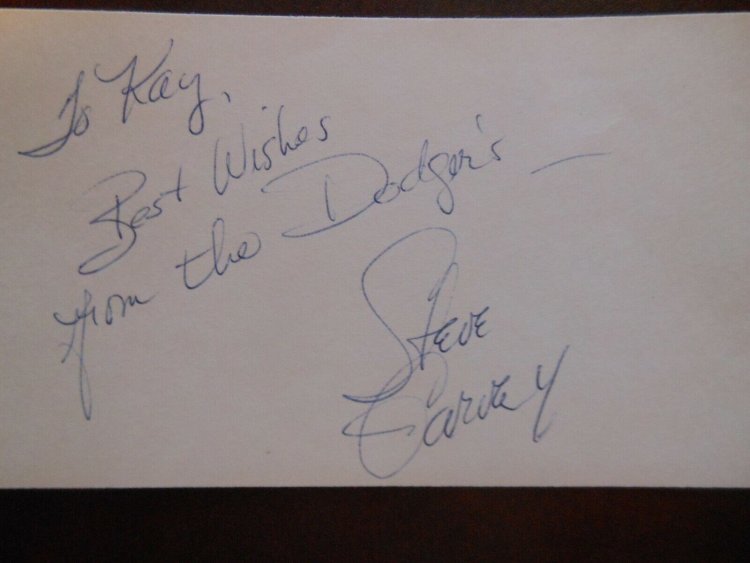 To Kay,
Best Wishes
from the Dodger's —
Steve
Garvey